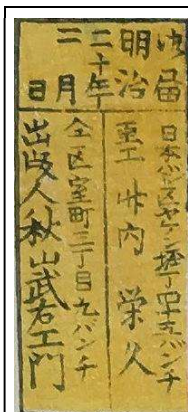 御届
明治
二十年
二月
日
日本バシ区ヤゲン堀丁四十五バンチ
画工 竹内 栄久
仝区室町三丁目九バンチ
出版人秋山武右エ門